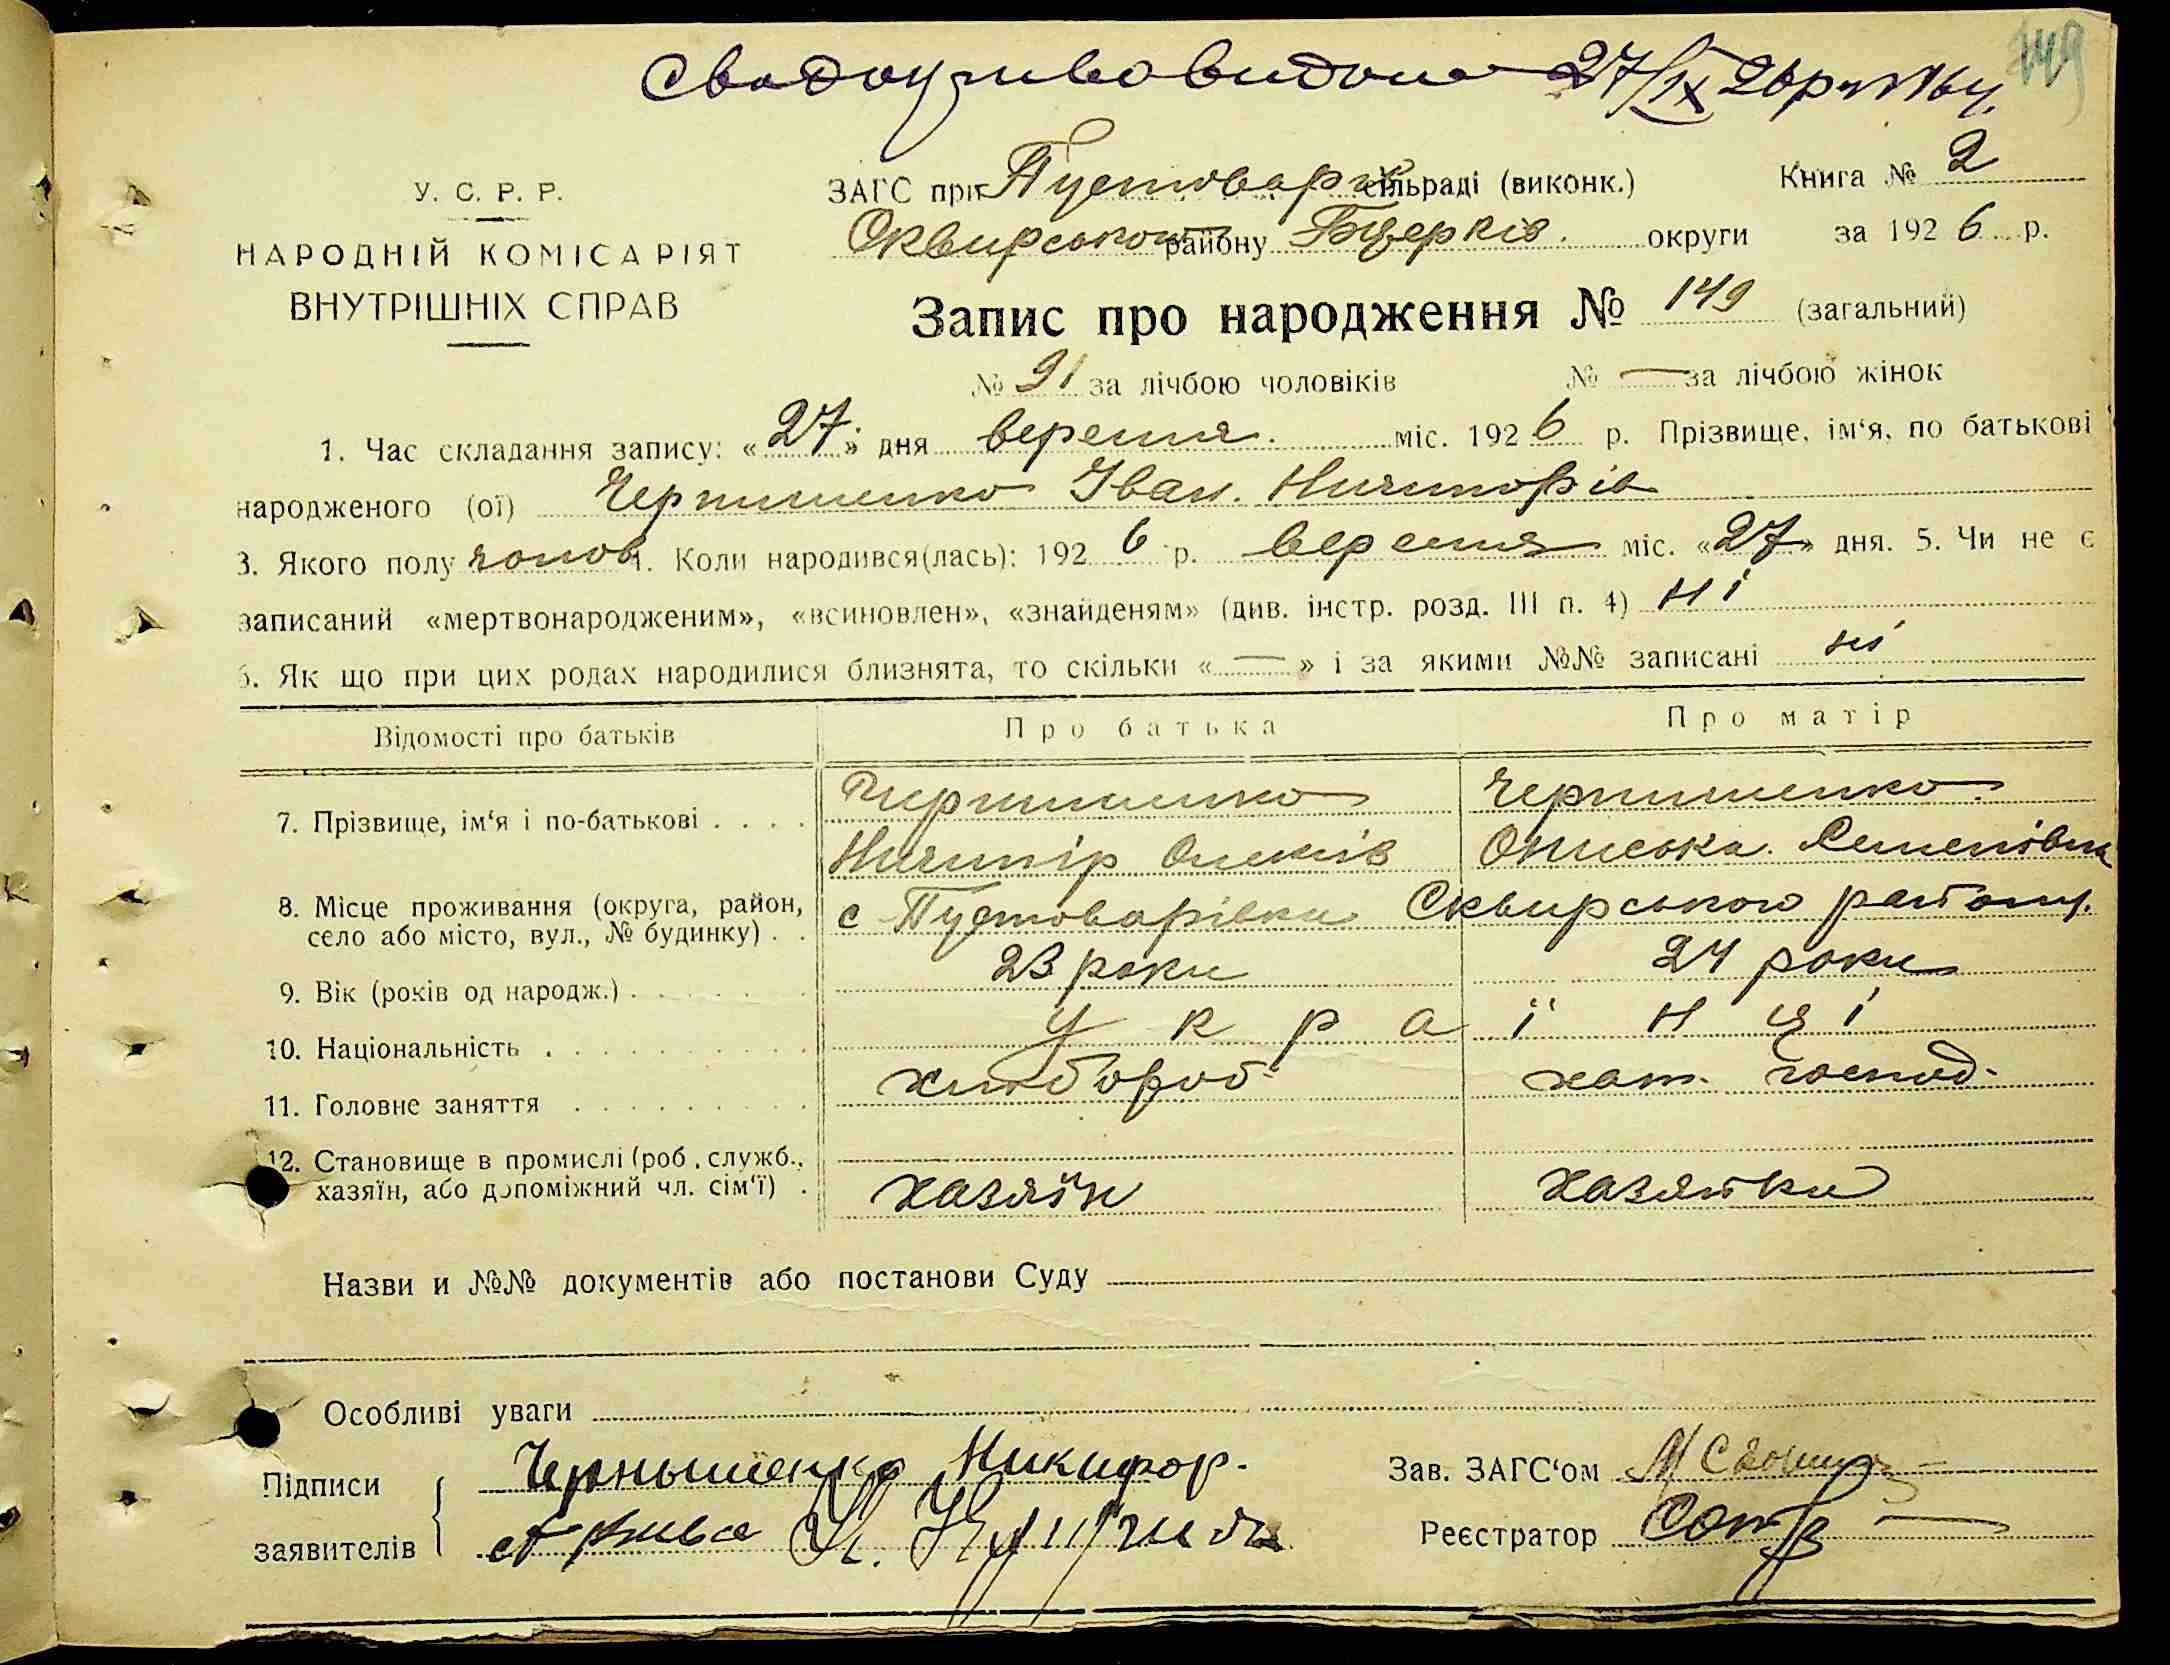 149
видано 27/IX 26 р
У. С. Р. Р.
НАРОДНІЙ КОМІСАРІЯТ
ВНУТРІШНІХ СПРАВ
ЗАГС при Пустоварів сільраді (виконк.) Книга № 2
Сквирського району Бцерків. округи за 1926 р.
Запис про народження № 149 (загальний)
№ 91 за лічбою чоловіків № — за лічбою жінок
1. Час складання запису: «27» дня вересня. міс. 1926 р. Прізвище, ім‘я, по батькові
народженого (ої) Чернишенко Іван. Ничипорів
3. Якого полу чолов 4. Коли народився(лась): 1926 р. вересня міс. «27» дня. 5. Чи не є
записаний «мертвонародженим», «всиновлен», «знайденям» (див. інстр. розд. III п. 4) ні
6. Як що при цих родах народилися близнята, то скільки «—» і за якими №№ записані ні
Відомості про батьків Про батька Про матір
7. Прізвище, ім‘я і по-батькові . . . .
Чернишенко Чернишенко
Ничипір Ониська. Семенівна
8. Місце проживання (округа, район,
село або місто, вул., № будинку) . .
с Пустоварівки Сквирського району.
9. Вік (років од народж.) . . . . . . . 23 роки 24 роки
10. Національність . . . . . . . . . . українці
11. Головне заняття . . . . . . . . . хлібороб хат. господ.
12. Становище в промислі (роб., служб.,
хазяїн, або допоміжний чл. сім‘ї) .
хазяїн хазяйка
Назви и №№ документів або постанови Суду
Особливі уваги
Підписи
заявителів
Чернышенко Никифор.
Зав. ЗАГС‘ом
Реєстратор